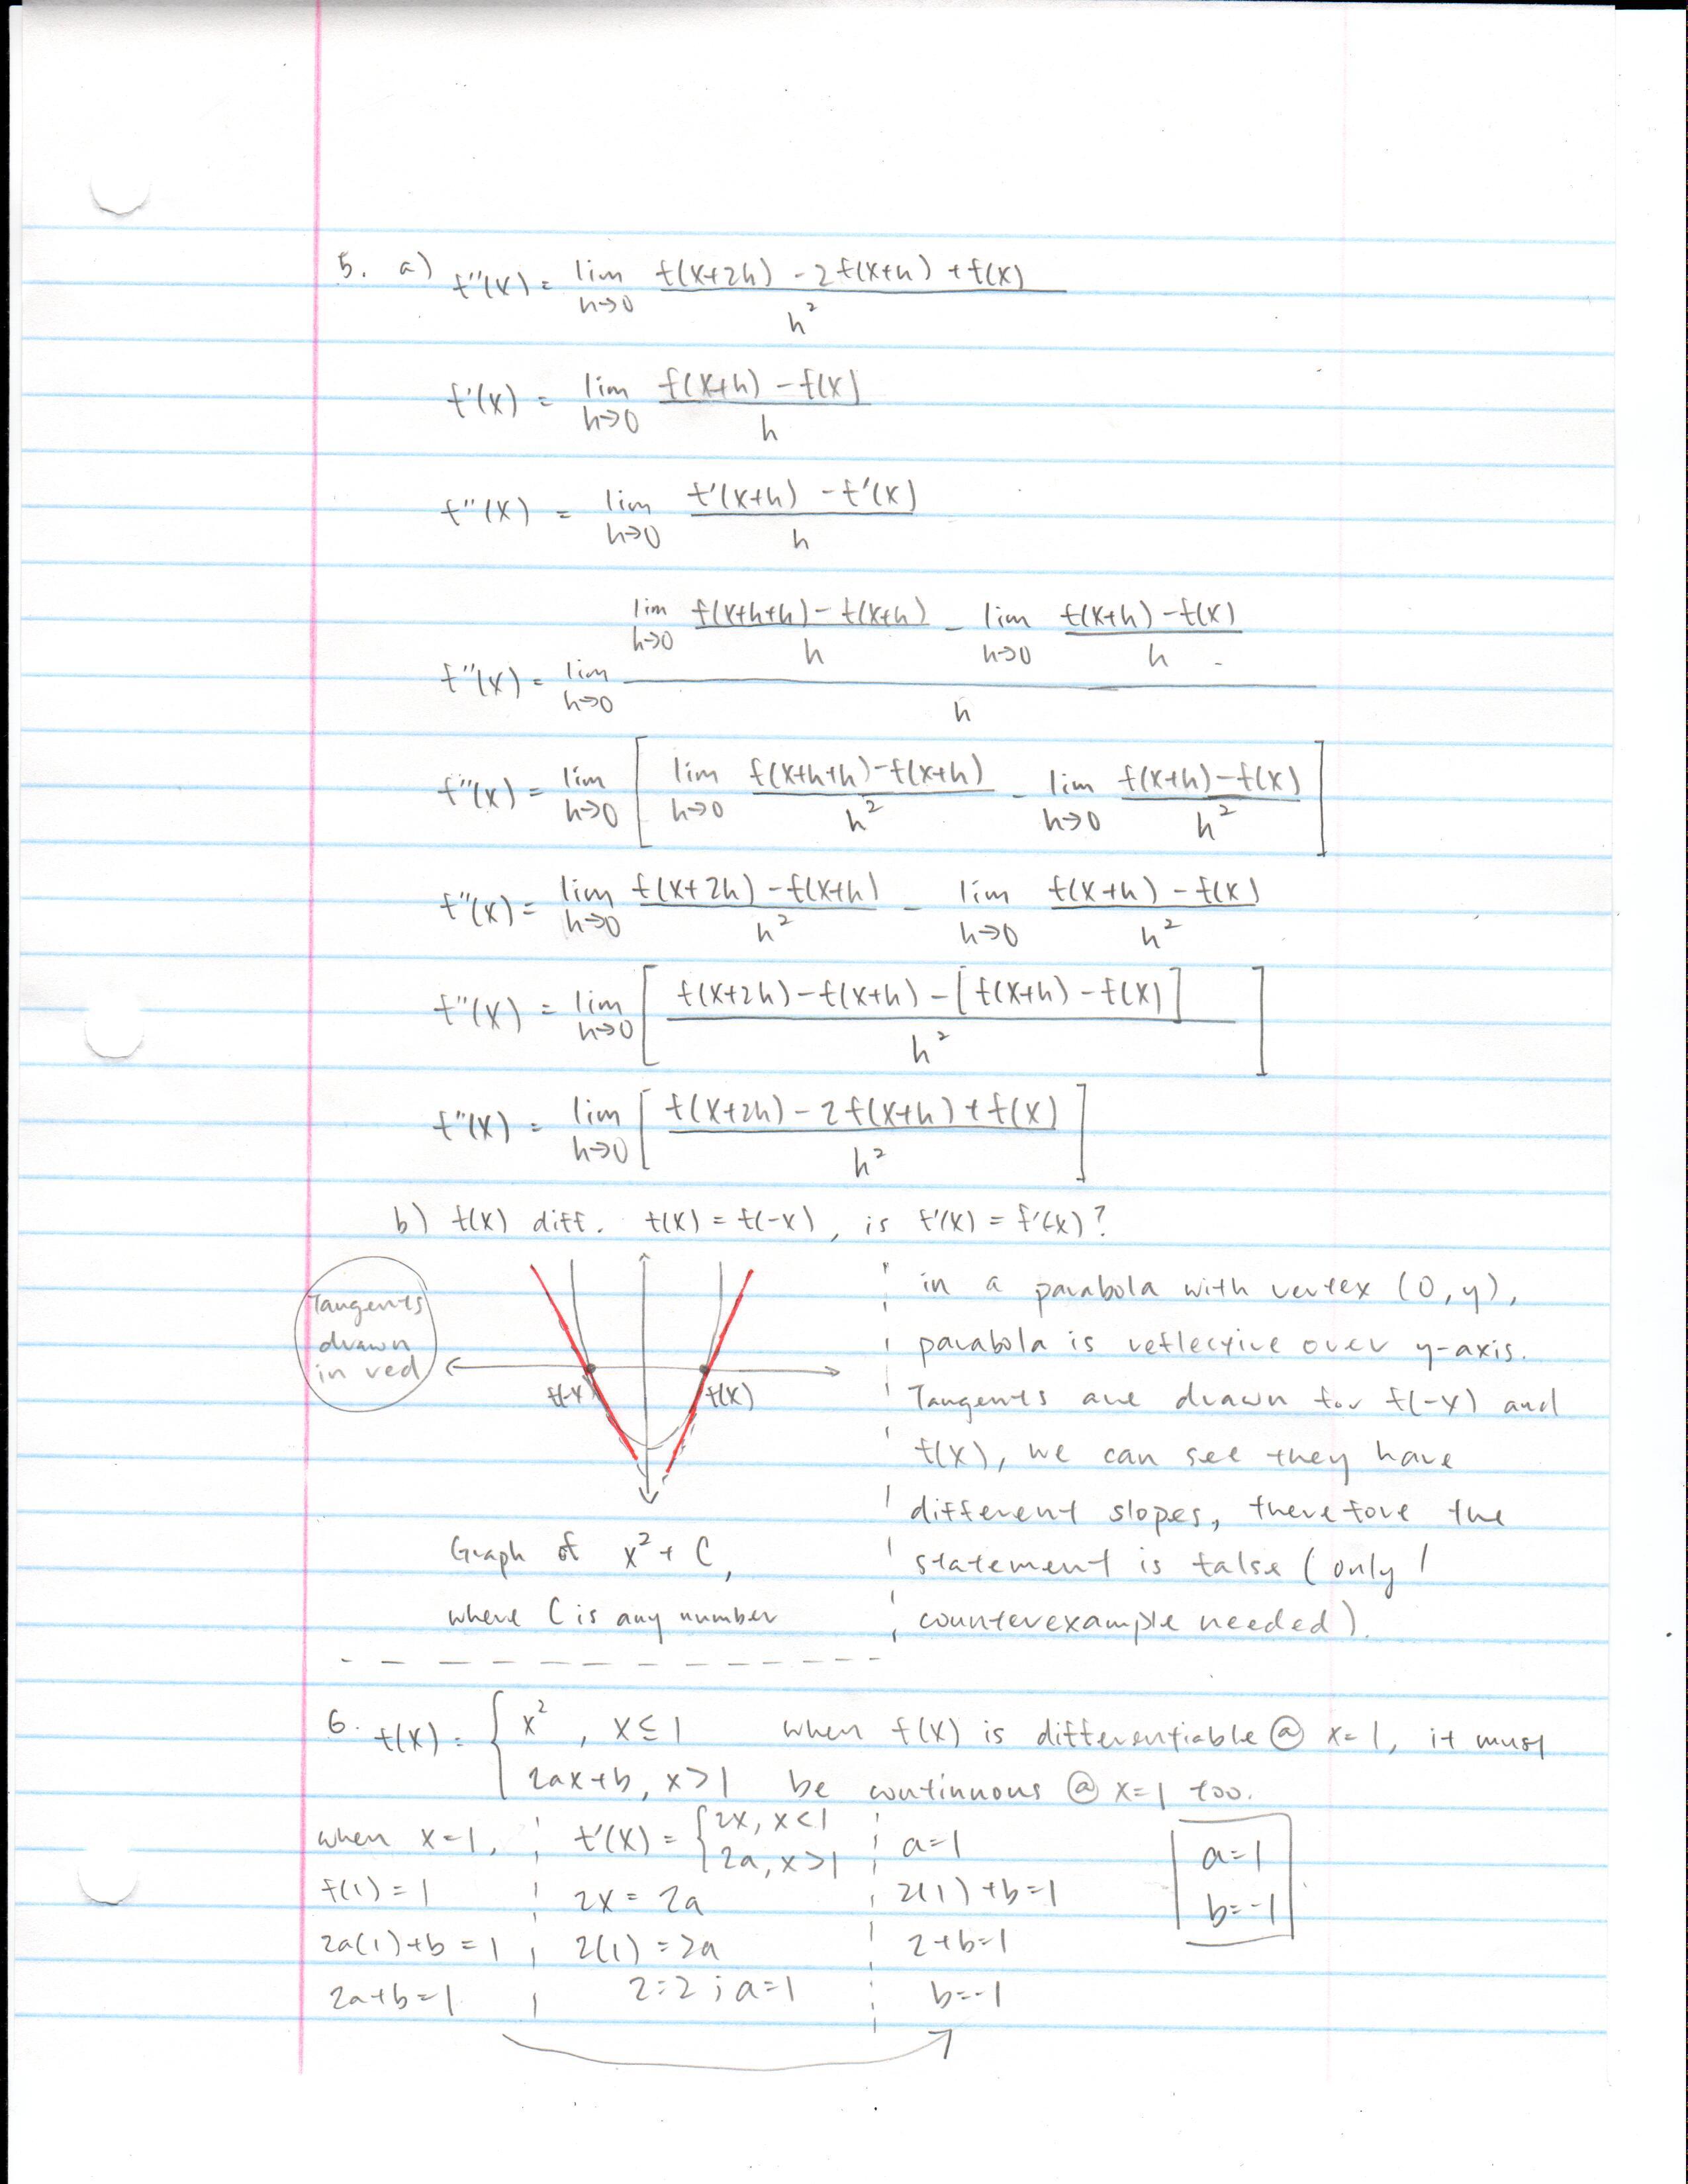 5. a) f''(x) = lim h→0 f(x+2h) - 2f(x+h) + f(x) / h²
f'(x) = lim h→0 f(x+h) - f(x) / h
f''(x) = lim h→0 f'(x+h) - f'(x) / h
f''(x) = lim h→0 lim h→0 f(x+h+h) - f(x+h) / h - lim h→0 f(x+h) - f(x) / h / h
f''(x) = lim h→0 [ lim h→0 f(x+h+h) - f(x+h) / h² - lim h→0 f(x+h) - f(x) / h² ]
f''(x) = lim h→0 f(x+2h) - f(x+h) / h² - lim h→0 f(x+h) - f(x) / h²
f''(x) = lim h→0 [ f(x+2h) - f(x+h) - [f(x+h) - f(x)] / h² ]
f''(x) = lim h→0 [ f(x+2h) - 2f(x+h) + f(x) / h² ]
b) f(x) diff. f(x) = f(-x), is f'(x) = f'(-x)?
Tangents
drawn
in red
f(-x)
f(x)
Graph of x² + C,
where C is any number
in a parabola with vertex (0,y),
parabola is reflective over y-axis.
Tangents are drawn for f(-x) and
f(x), we can see they have
different slopes, therefore the
statement is false (only 1
counterexample needed).
6. f(x) = { x², x ≤ 1 when f(x) is differentiable @ x=1, it must
2ax+b, x>1 be continuous @ x=1 too.
when x=1,
f(1) = 1
2a(1)+b = 1
2a+b=1
f'(x) = { 2x, x<1
2a, x>1
2x = 2a
2(1) = 2a
2=2; a=1
a=1
2(1)+b=1
2+b=1
b=-1
a=1
b=-1